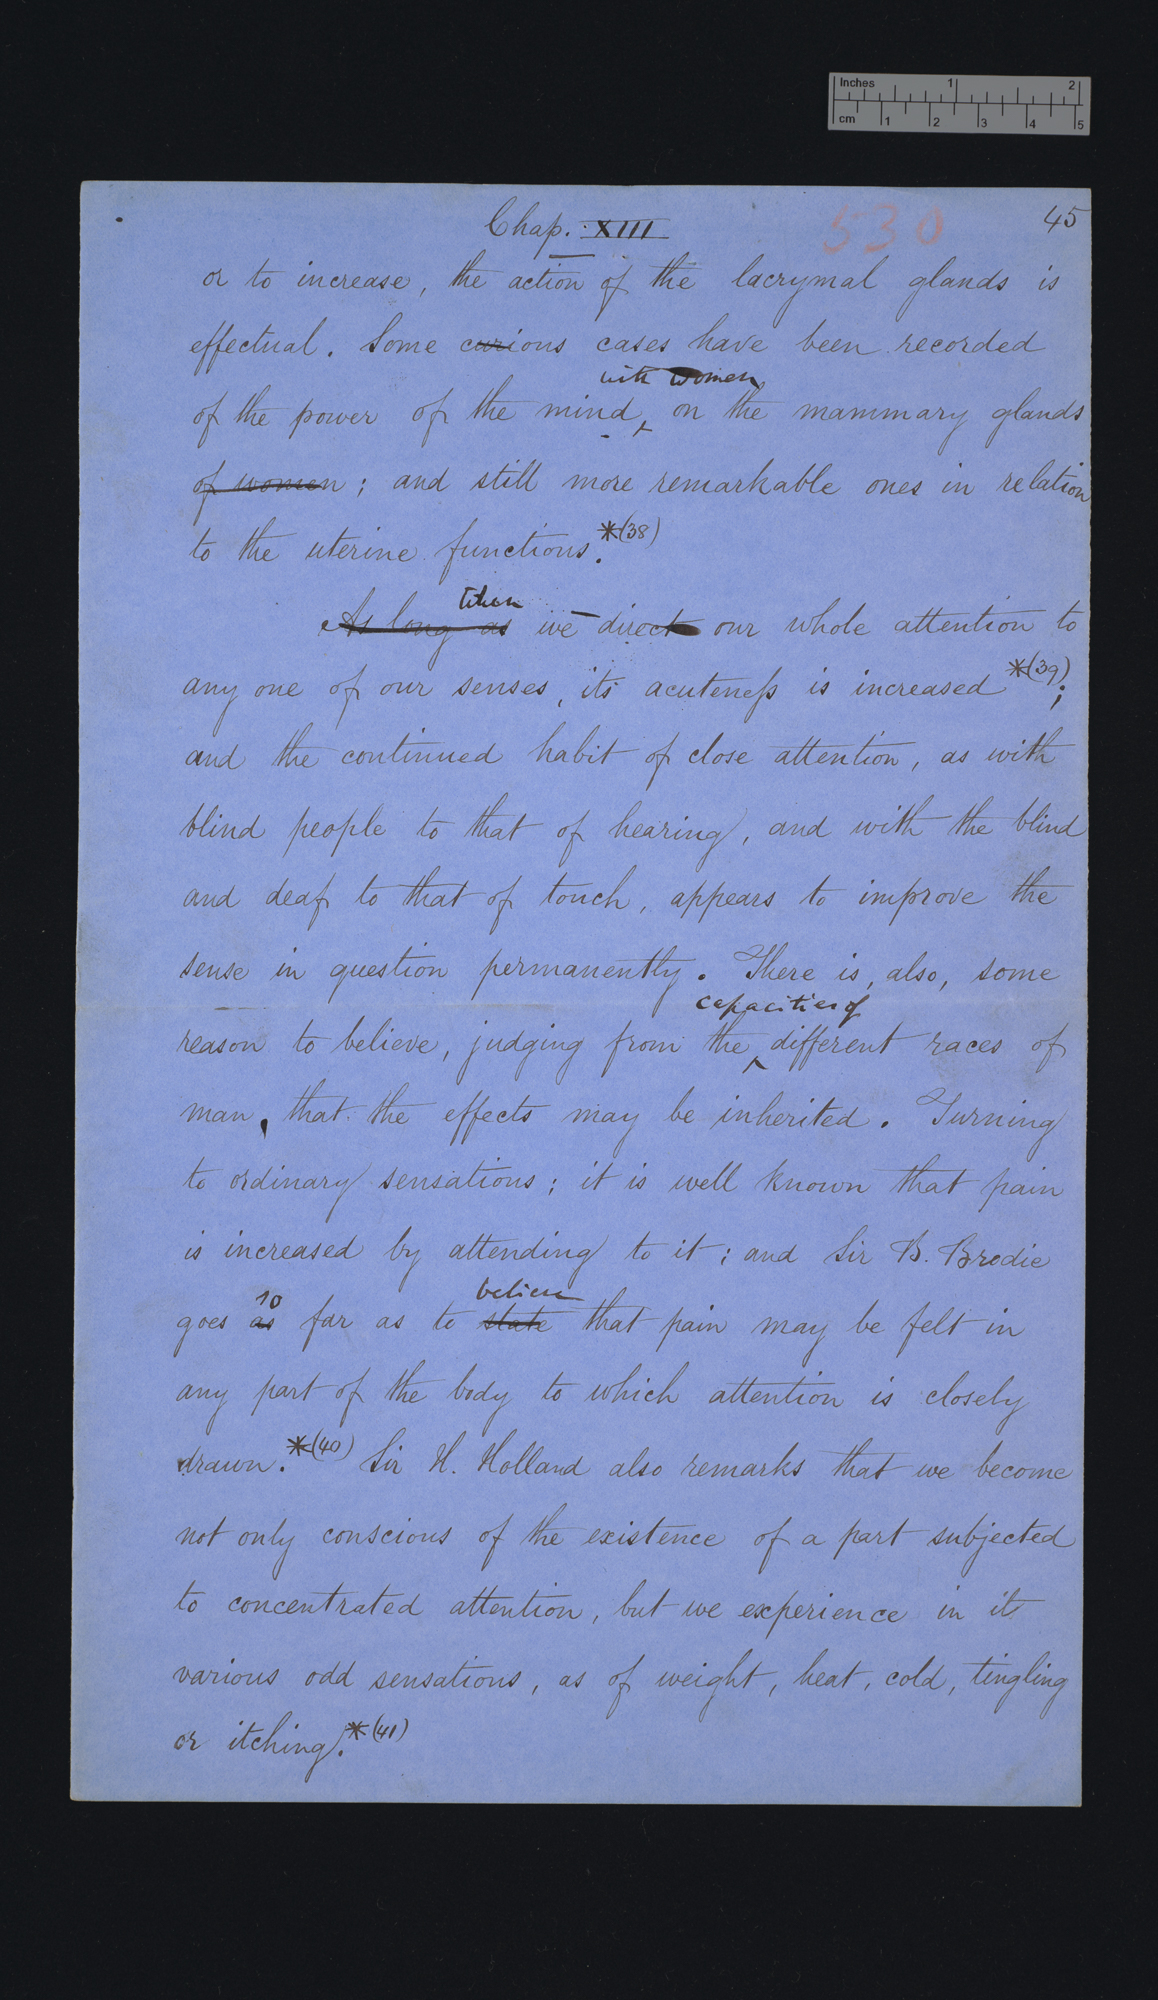 Inches 1 2
cm 1 2 3 4 5
Chap. XIII 530 45
or to increase, the action of the lacrymal glands is
effectual. Some curious cases have been recorded
with women
of the power of the mind, on the mammary glands
of women; and still more remarkable ones in relation
to the uterine functions.*(38)
When
As long as we direct our whole attention to
any one of our senses, its acuteness is increased*(39);
and the continued habit of close attention, as with
blind people to that of hearing, and with the blind
and deaf to that of touch, appears to improve the
sense in question permanently. There is, also, some
capacities of
reason to believe, judging from the different races of
man, that the effects may be inherited. Turning
to ordinary sensations; it is well known that pain
is increased by attending to it; and Sir B. Brodie
so believe
goes as far as to state that pain may be felt in
any part of the body to which attention is closely
drawn.*(40) Sir H. Holland also remarks that we become
not only conscious of the existence of a part subjected
to concentrated attention, but we experience in it
various odd sensations, as of weight, heat, cold, tingling
or itching.*(41)